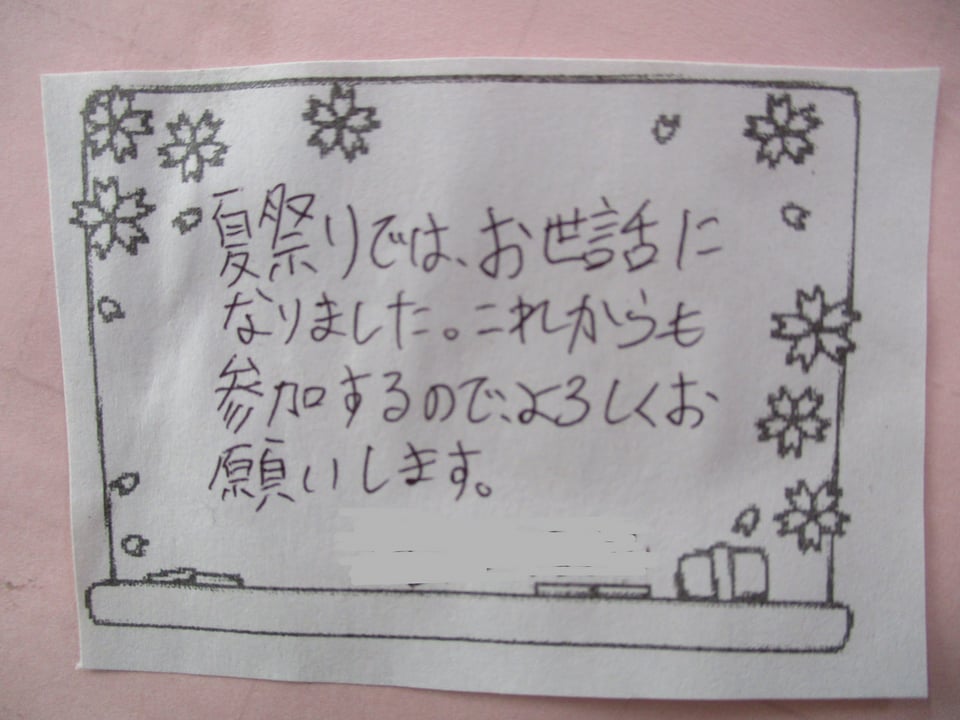 夏祭りでは、お世話に
なりました。これからも
参加するので、よろしくお
願いします。